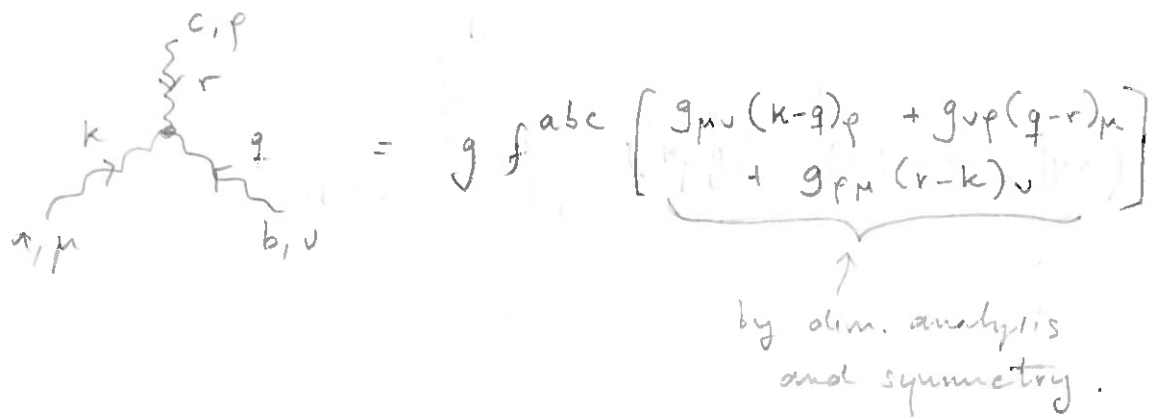 c, ρ
r
k
q
a, μ
b, ν
= g f^{abc} [ g_{μν} (k-q)_ρ + g_{νρ} (q-r)_μ
+ g_{ρμ} (r-k)_ν ]
by dim. analysis
and symmetry.